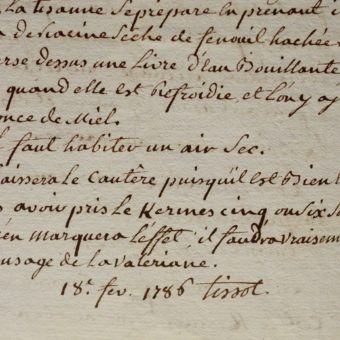 La tisanne se prépare en prenant
de Racine sèche de fenouil hachée
verse dessus une Livre d'Eau Bouillante
quand elle est refroidie, et l'on y aj
once de Miel.
faut habiter un air Sec.
laissera le cautère puisqu'il est Bien
avoir pris le Kermes cinq ou six
en marquera l'effet; il faudra vraisem
usage de la valeriane.
18e. fev. 1786 Tissot.